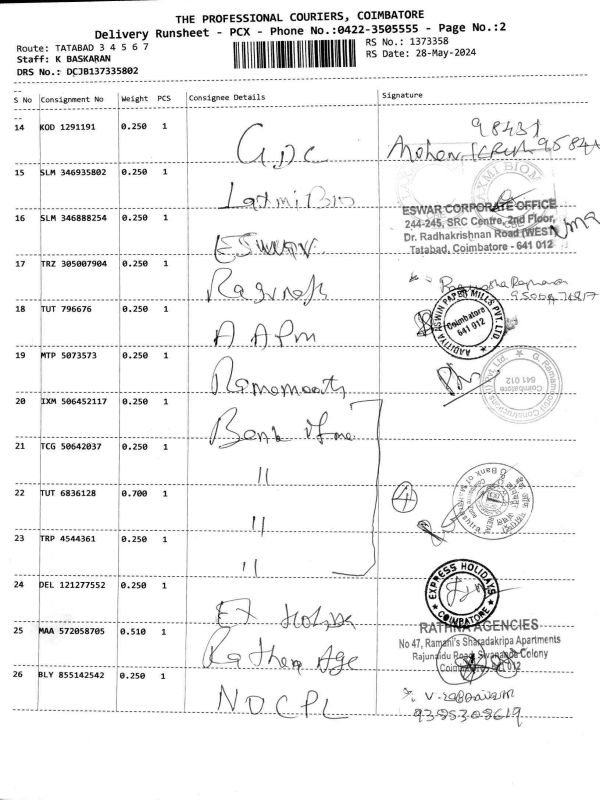 THE PROFESSIONAL COURIERS, COIMBATORE
Delivery Runsheet - PCX - Phone No.:0422-3505555 - Page No.:2
Route: TATABAD 3 4 5 6 7
Staff: K BASKARAN
DRS No.: DCJB137335802
RS No.: 1373358
RS Date: 28-May-2024
S No Consignment No Weight PCS Consignee Details Signature
14 KOD 1291191 0.250 1
15 SLM 346935802 0.250 1 Laxmi Bio
16 SLM 346888254 0.250 1 Eswar
ESWAR CORPORATE OFFICE
244-245, SRC Centre, 2nd Floor,
Dr. Radhakrishnan Road (WEST)
Tatabad, Coimbatore - 641 012
17 TRZ 305007904 0.250 1
18 TUT 796676 0.250 1 AAPM
AADITIYA ASWIN PAPER MILLS PVT. LTD.
Coimbatore
641 012
19 MTP 5073573 0.250 1
G. Ramamoorthi Constructions (I) Pvt. Ltd.
Coimbatore
641 012
20 IXM 506452117 0.250 1 Bank of
21 TCG 50642037 0.250 1 "
22 TUT 6836128 0.700 1 "
4
Bank of Maharashtra
23 TRP 4544361 0.250 1 "
24 DEL 121277552 0.250 1
EXPRESS HOLIDAYS
COIMBATORE
25 MAA 572058705 0.510 1
RATHNA AGENCIES
No 47, Ramani's Sharadakripa Apartments
Rajunaidu Road, Swananda Colony
Coimbatore - 641 012
26 BLY 855142542 0.250 1 NDCPL
9385308619